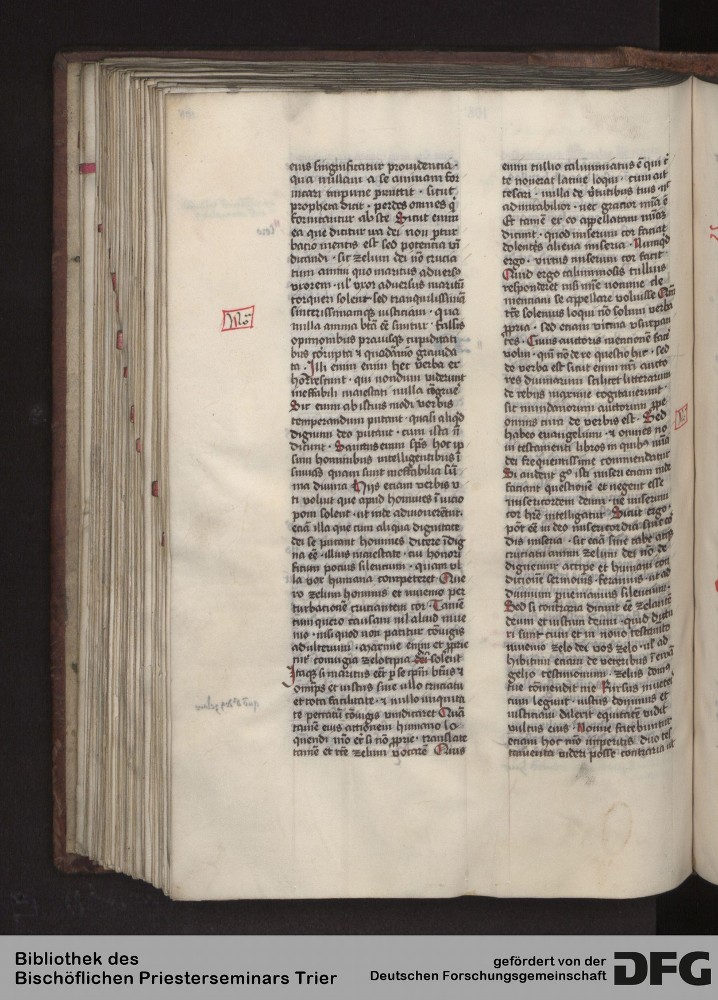 eius singnificatur prouidentia ·
qua nullam a se animam for
nicari impune permittit · sicut
propheta dicit · perdes omnes q̄
fornicantur abs te Sicut enim
ea que dicitur ira dei non ꝑtur
bacio mentis est sed potencia vī
dicandi · sic zelum dei nō crucia
tum animi quo maritus aduerso
vxorem · ul̓ vxor aduersus maritū
torqueri solent sed tranquillissimā
sincerissimamqꝫ iusticiam · qua
nulla anima btā eē sinitur · falsis
opinionibus prauisqꝫ cupiditati
bus corrupta ⁊ quadāmō grauida
ta · Illi enim enim hec verba ex
horrescunt · qui nondum viderunt
ineffabili maiestati nulla cōgrue
Sic enim ab istius modi verbis
temperandum putant · quasi aliqd̓
dignum deo putant · cum ista nō
dicunt · Sanctus enim sp̄s hoc ip̄
sum hominibus intelligentibus ī
sinuās quam sunt ineffabilia sum̄
ma diuina Hijs eciam verbis v
ti voluit que apud homines ī uicio
poni solent · ut inde admonerēnt̓
eciā illa que cum aliqua dignitate
dei se putant homines dicere īdig
na eē · illius maiestate · cui honori
ficum pocius silencium · quam vl̓
la vox humana competeret Que
ro zelum hominis et inuenio per
turbacionē cruciantem cor · Tamē
cum quero causam nil aliud inue
nio · nisi quod non patitur cōiugis
adulterium · Maxime enim et ꝓprie
in coniugia zelotipia dici solent
Itaqꝫ si maritus eēt ꝑ se ip̄m btūs ⁊
omīps et iustus sine ullo cruciatu
et tota facilitate · ⁊ nullo iniquita
te peccatū cōiugis vindicaret Quā
tamē eius actionem humano lo
quendi mō et si nō ꝓprie · translate
tamē et rēē zelum vocarē Quis
Mō
enim tullio calumniatus ē qui c̄
te nouerat latine loqui · cum ait
cesari · nulla de v̓tutibus tuis · nc̄
admirabilior · nec gracior mīā ē
Et tamē ex eo appellatam mīāꝫ
dicunt · quod miserum cor faciat
dolentꝭ aliena miseria · Numqd̓
ergo · virtus miserum cor facit
Quid ergo calumniosis tullius
responderet nisi mīe nomine cle
menciam se appellare voluisse Quī
rēē solemus loqui nō solum verba
ꝓpria · sed eciam vicina vsurpan
tes · Cuius auctoris mencionē face
volui · qm̄ nō de re questio hic · sed
de verbo est sicut enim nrī aucto
res diuinarum scilicet litterarum
de rebus maxime cogitauerunt ·
sic mundanorum auctorum ꝓpe
omnis cura de verbis est · Sed
habeo euangelium · ⁊ omnes no
ui testamenti libros in quibꝫ mīā
dei frequentissime commendatur
Si audent gͦ isti miseri eciam inde
faciant questionē et negent esse
misericordem deum · ne miserum
cor hr̄e intelligatur Sicut ergo ·
pōt eē in deo misericordia sine cor
dis miseria · sic eciā sine tabe atqꝫ
cruciatu animi zelum dei nō de
dignemur accipe et humani con
dicionē sermonis · feramus · ut ad
diuinum pueniamus silencium ·
Sed si contraria dicant eē zelantē
deum et iustum deum · quid dictu
ri sunt cum et in nouo testamēto
inuenio zelo dei vos zelo · ul̓ ad
hibitum eciam de veteribus ī ewā
gelio testimonium · zelus domꝰ
tue comendit me Rursus inuento
cum legunt · iustus dominus et
iusticiam dilexit equitatē vidit
vultus eius · Nonne fatebuntur
eciam hoc mō imperitis duo tes
tamenta videri posse contraria ut
Bibliothek des
Bischöflichen Priesterseminars Trier
gefördert von der
Deutschen Forschungsgemeinschaft
DFG